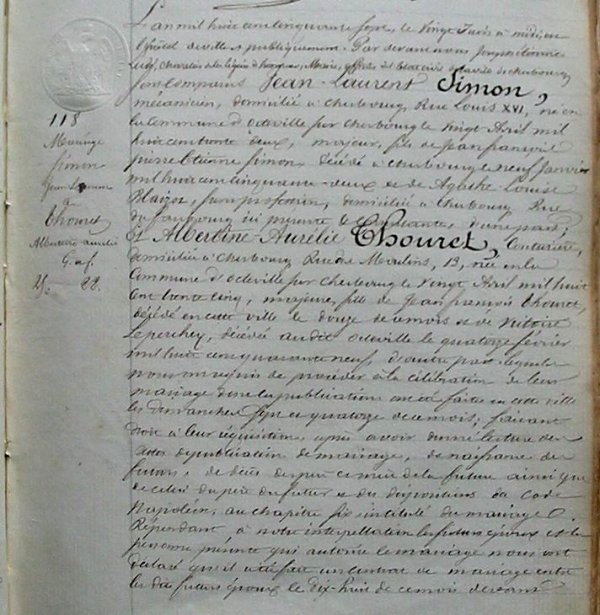 L'an mil huit cent cinquante sept, le vingt Juin à midi, en
l'hôtel de ville et publiquement. Par devant nous Joseph Etienne
Ludé, Chevalier de la Légion d'honneur, Maire, officier de l'Etat civil de la ville de Cherbourg
sont comparus Jean-Laurent Simon,
mécanicien, domicilié à Cherbourg, Rue Louis XVI, né en
la commune d'octeville par cherbourg le vingt Avril mil
huit cent trente deux, majeur, fils de Jean françois
pierre Etienne Simon, décédé à Cherbourg le neuf Janvier
mil huit cent cinquante-deux et de Agathe Louise
sans profession, domiciliée à Cherbourg Rue
du faubourg ici présente et consentante, d'une part;
Et Albertine Aurélie Thouret, Couturière,
domiciliée à Cherbourg Rue des Moulins, 13, née en la
commune d'octeville par cherbourg le vingt Avril mil huit
cent trente cinq, majeure, fille de Jean françois Thouret,
décédé en cette ville le douze de ce mois et de Victoire
Leperchey, décédée au dit octeville le quatorze février
mil huit cent quarante neuf, d'autre part lesquels
nous ont requis de procéder à la célébration de leur
mariage dont la publication a été faite en cette ville
les dimanches sept et quatorze de ce mois; faisant
droit à leur réquisition, après avoir donné lecture des
actes de publication de mariage, de naissance des
futurs, de décès des père et mère de la future ainsi que
de celui du père du futur et des dispositions du Code
Napoléon, au chapitre six intitulé du mariage.
Répondant à notre interpellation les futurs époux et la
personne présente qui autorise le mariage nous ont
déclaré qu'il a été fait un contrat de mariage entre
les dits futurs époux le dix-huit de ce mois devant
118
Mariage
Simon
Jean-Laurent
&
Thouret
Albertine aurélie
G. af.
25. 22.